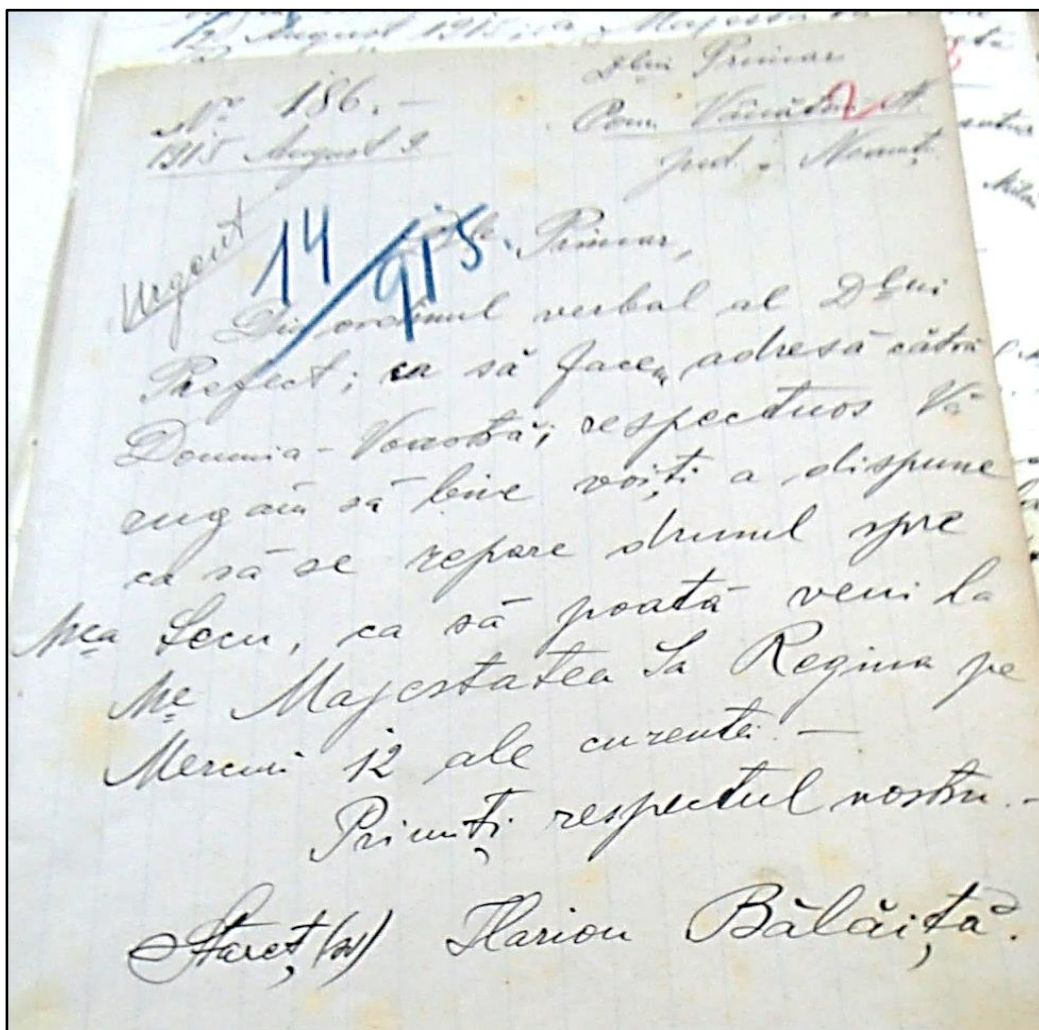 12 August 1915; ca Majestatea Sa
Nº 186. –
1915 August 9
Dlui Primar
Com. Vânători N.
Jud. Neamț
2
Urgent
14/915.
Dle Primar,
Din ordinul verbal al Dlui
Prefect; ca să facem adresă către
Domnia-Voastră; respectuos Vă
rugăm să bine voiți a dispune
ca să se repare drumul spre
Mrea Secu, ca să poată veni la
Mre Majestatea Sa Regina pe
Mercuri 12 ale curentei. –
Primiți respectul nostru. –
Stareț (ss) Ilarion Bălăiță.